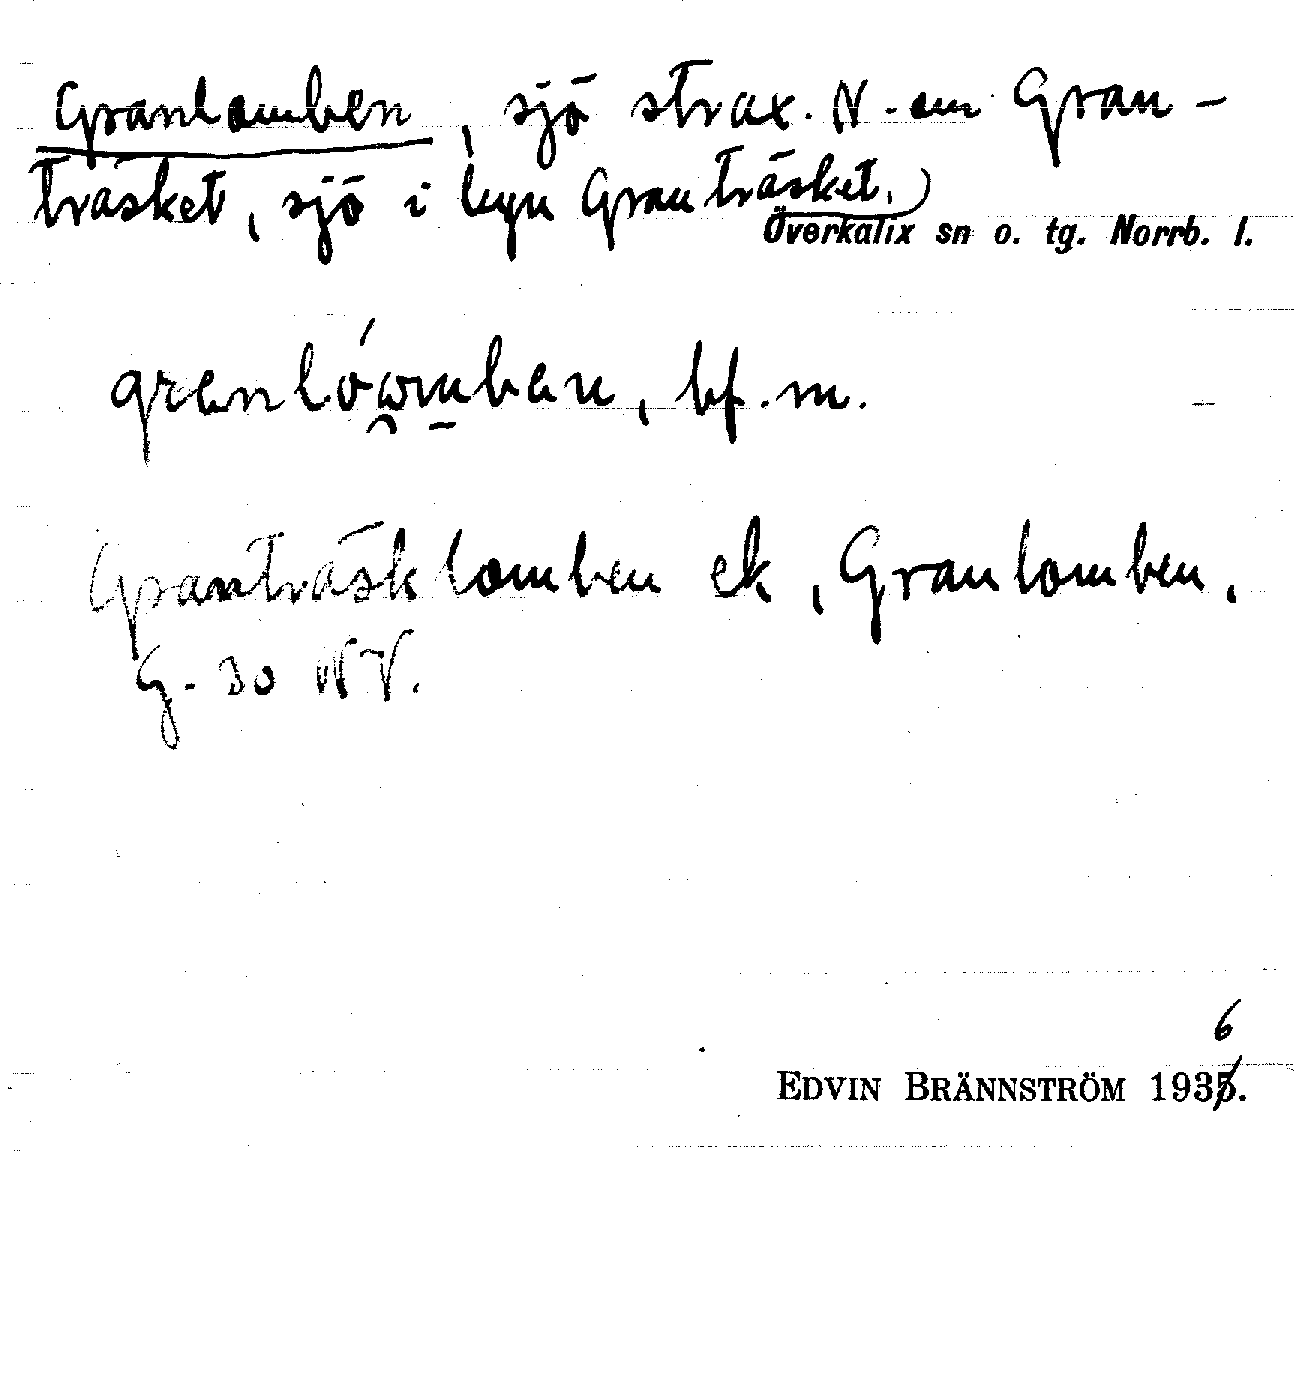 Granlomben, sjö strax. N-om Gran-
träsket, sjö i byn Granträsket,
Överkalix sn o. tg. Norrb. l.
bf. m.
Granträsklomben ek, Granlomben,
G-30 NV.
6
EDVIN BRÄNNSTRÖM 1935.